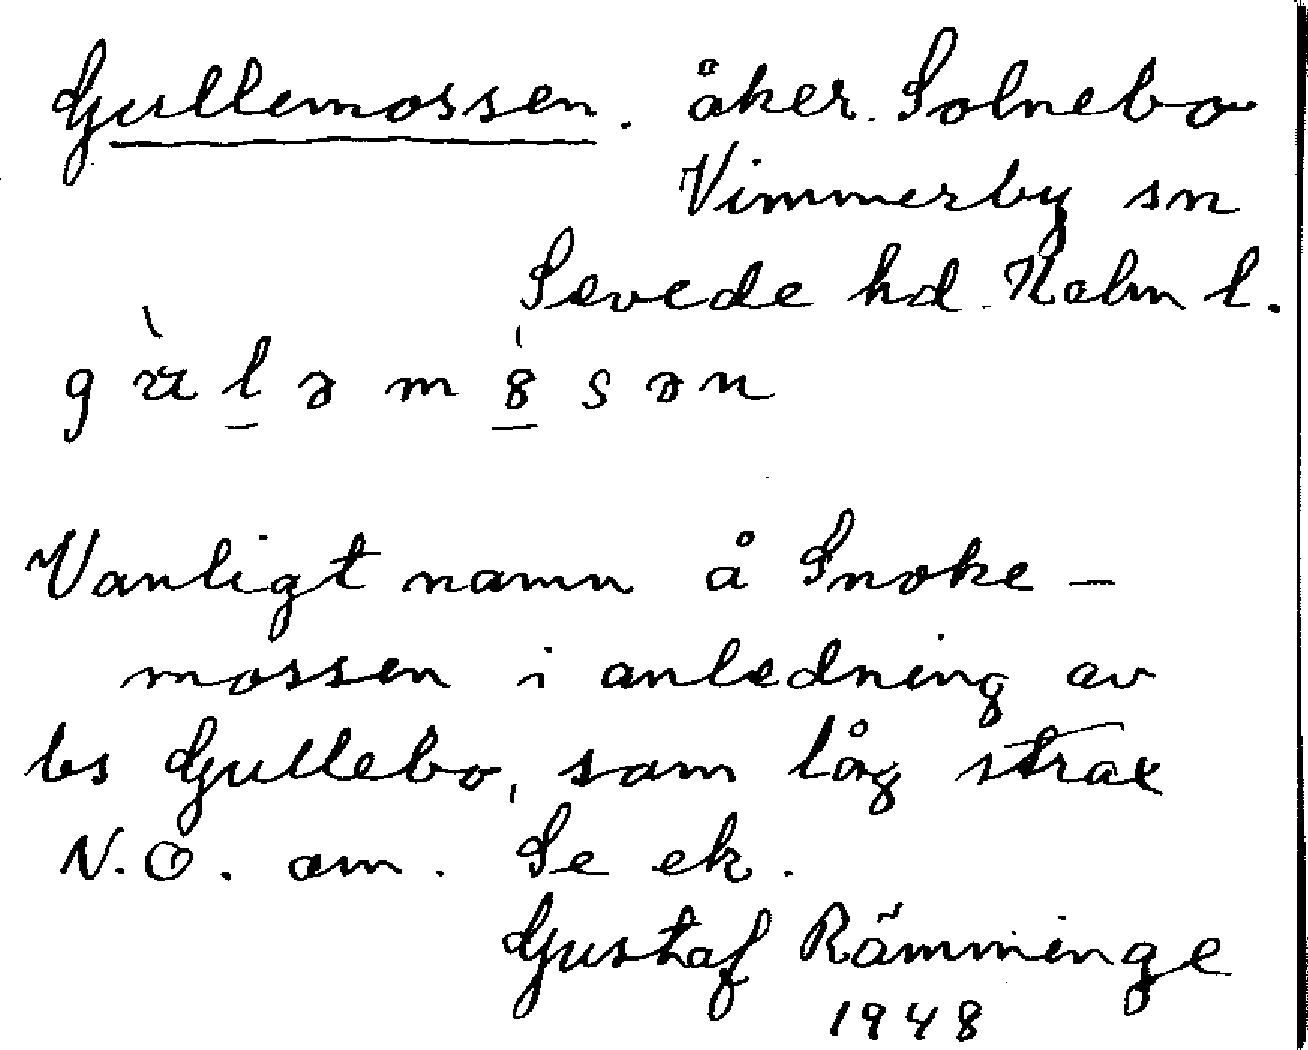 Gullemossen. åker. Solnebo
Vimmerby sn
Sevede hd. Kalm l.
Vanligt namn å Snoke-
mossen i anledning av
ls Gullebo, som låg strax
N.O. om. Se ek.
Gustaf Rämminge
1948